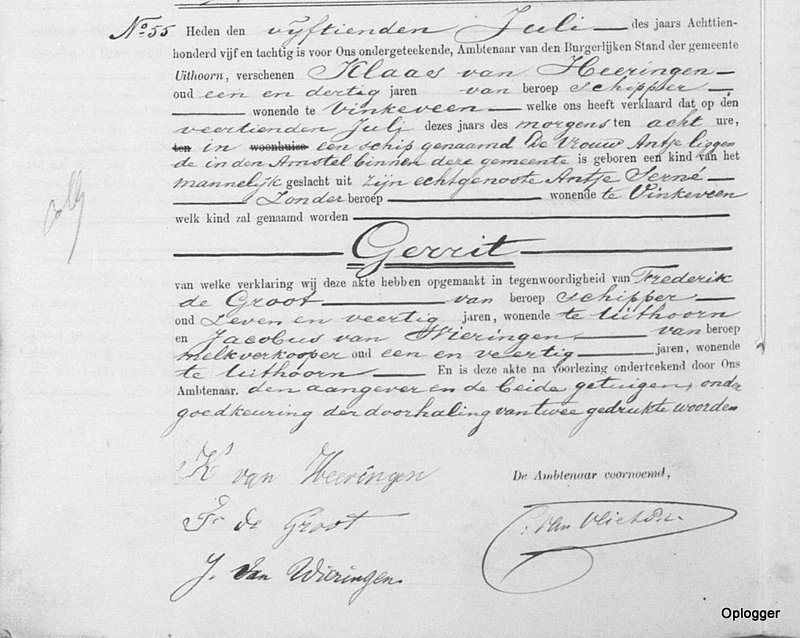 No 55 Heden den vijftienden Juli des jaars Achttien-
honderd vijf en tachtig is voor Ons ondergeteekende, Ambtenaar van den Burgerlijken Stand der gemeente
Uithoorn, verschenen Klaas van Heeringen
oud een en dertig jaren van beroep schipper
wonende te Vinkeveen welke ons heeft verklaard dat op den
veertienden Juli dezes jaars des morgens ten acht ure,
ten in woonhuize een schip genaamd De Vrouw Antje liggen
de in den Amstel binnen deze gemeente is geboren een kind van het
mannelijk geslacht uit zijn echtgenoote Antje Serné
Zonder beroep wonende te Vinkeveen
welk kind zal genaamd worden
Gerrit
van welke verklaring wij deze akte hebben opgemaakt in tegenwoordigheid van Frederik
de Groot van beroep schipper
oud zeven en veertig jaren, wonende te Uithoorn
en Jacobus van Wieringen van beroep
melkverkooper oud een en veertig jaren, wonende
te Uithoorn En is deze akte na voorlezing onderteekend door Ons
Ambtenaar. den aangever en de beide getuigen, onder
goedkeuring der doorhaling van twee gedrukte woorden
K van Heeringen
De Ambtenaar voornoemd,
Fr de Groot
van Vliet
J. van Wieringen.
Oplogger